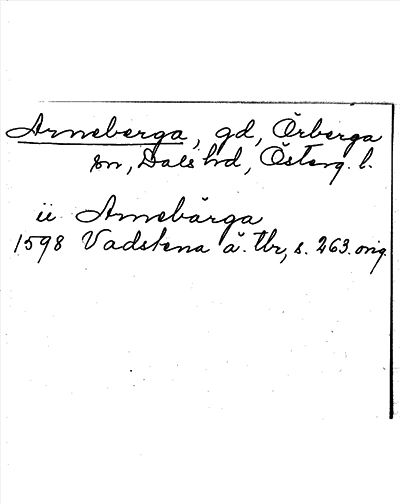 Arneberga, gd, Örberga
sn, Dals hd, Österg. l.
ii Arnebärga
1598 Vadstena ä. tbr, s. 263. orig.